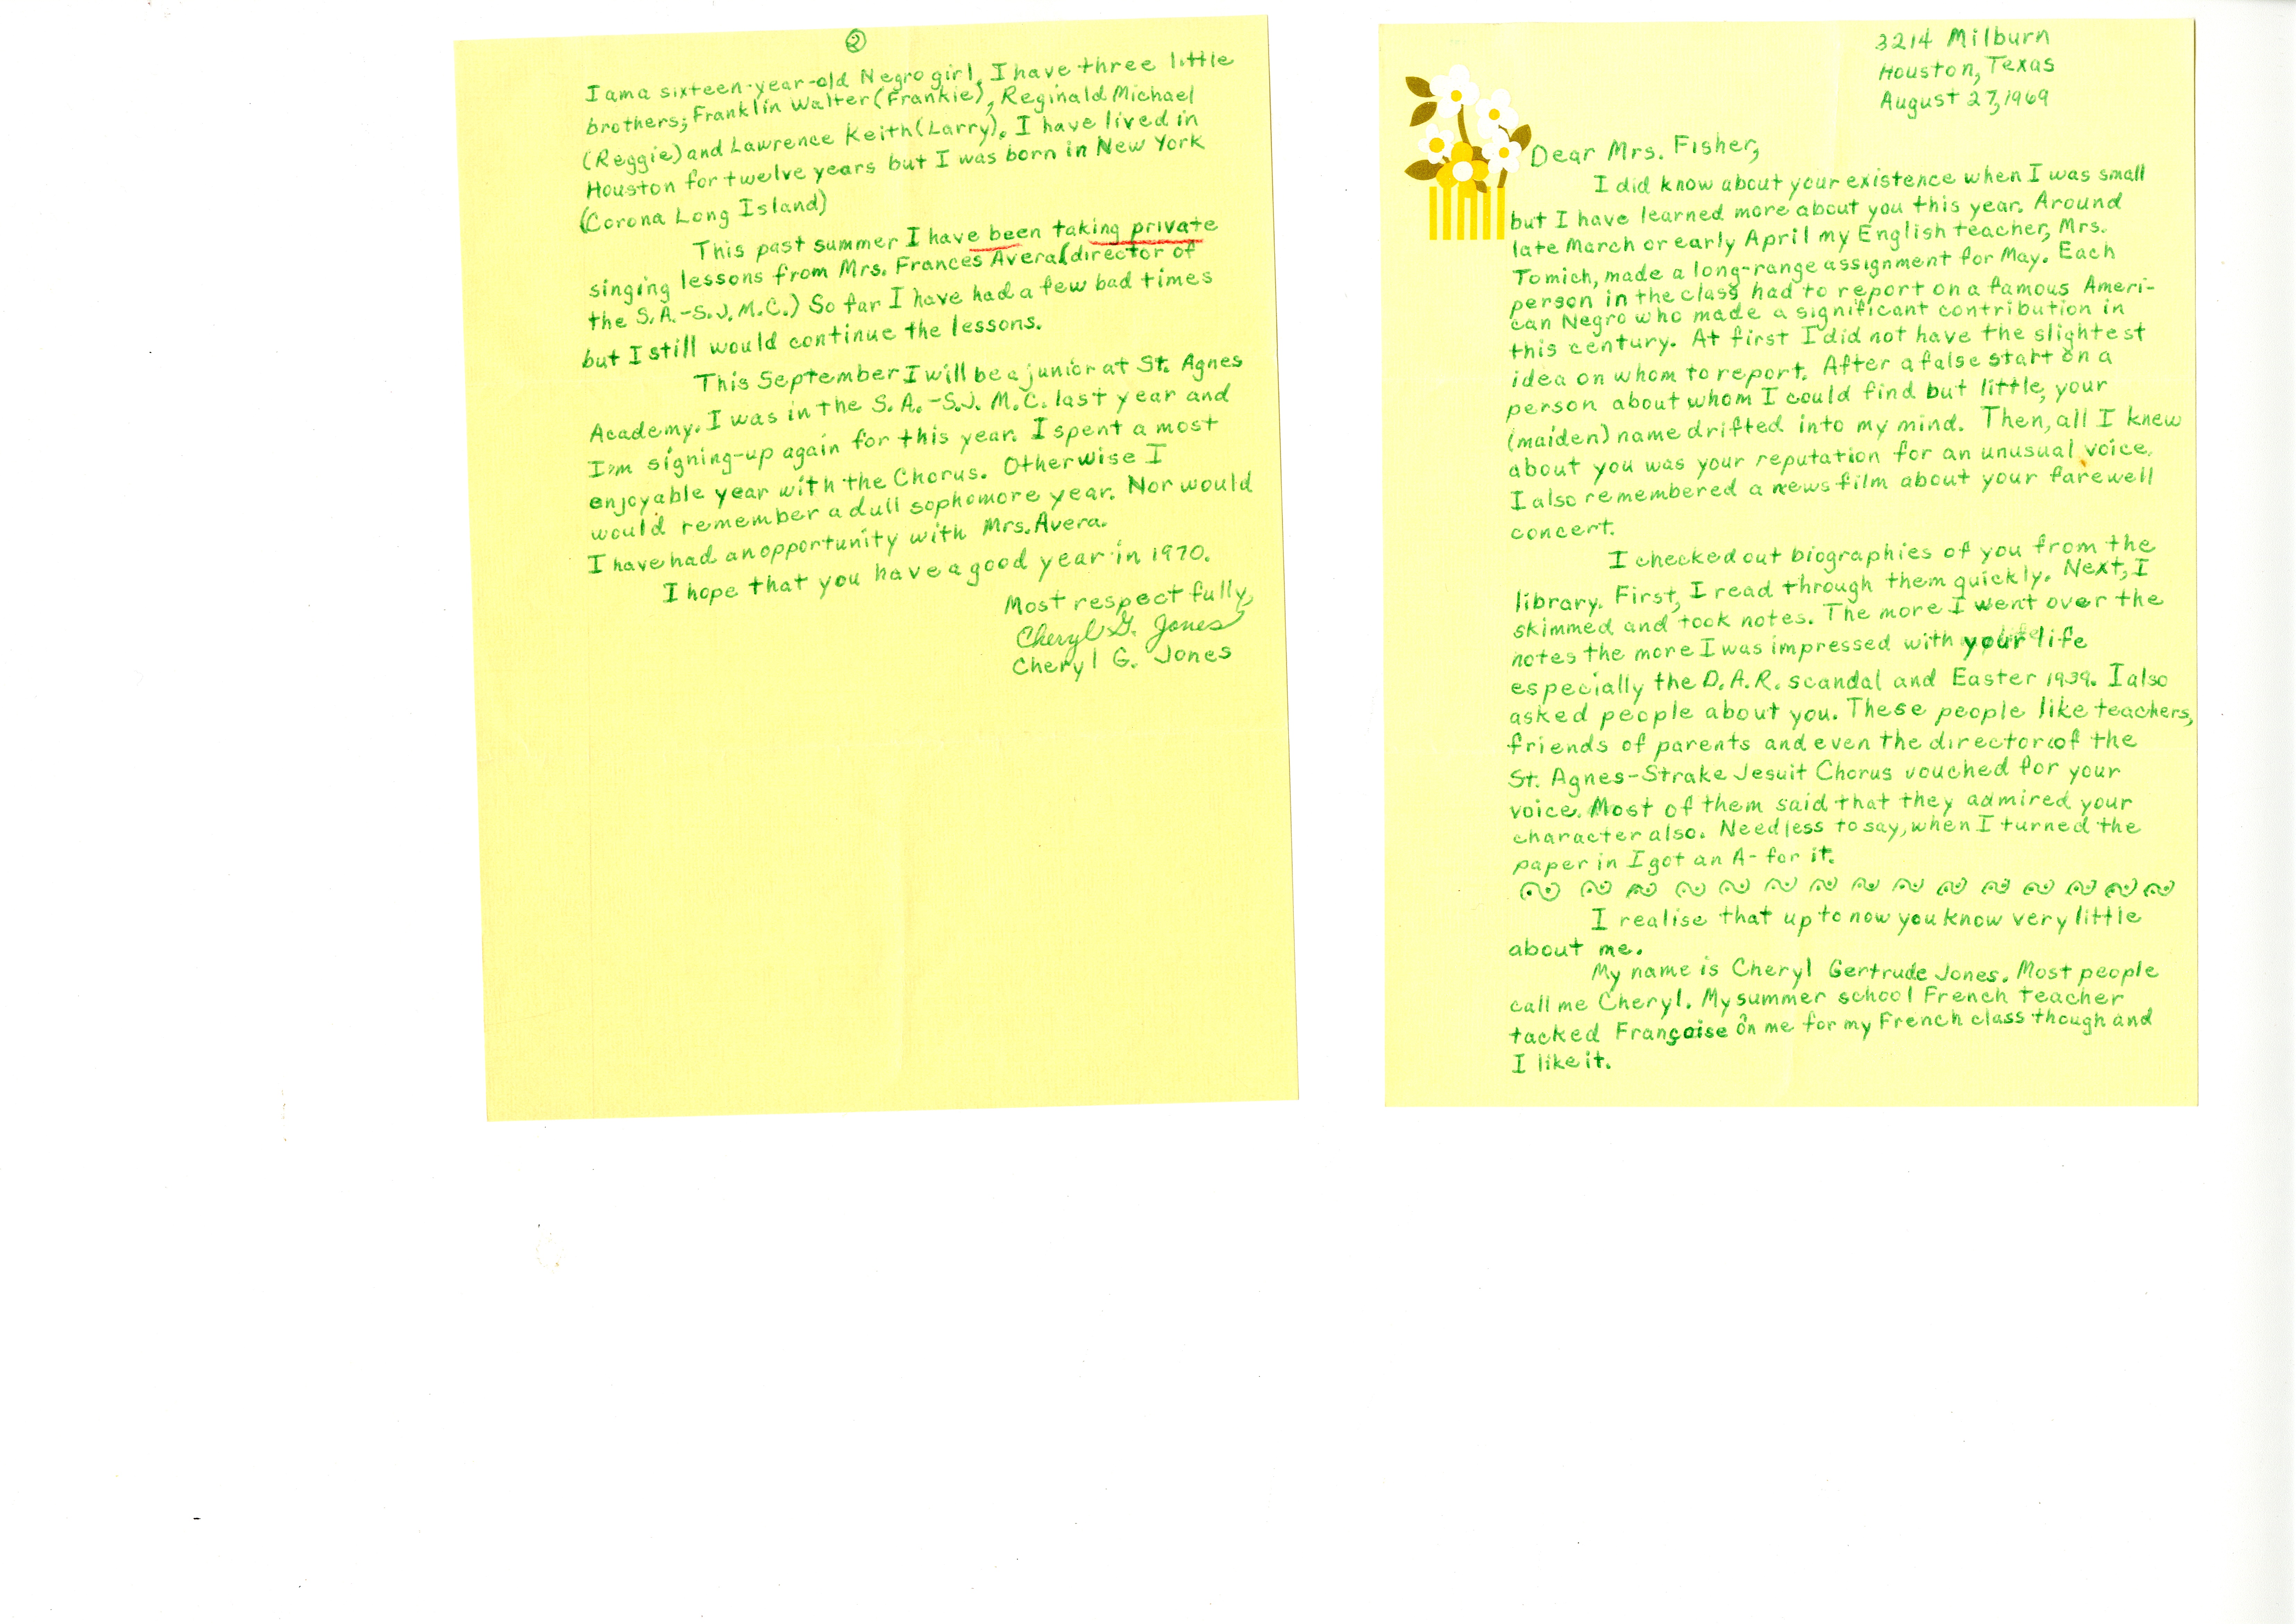 3214 Milburn
Houston, Texas
August 27, 1969
Dear Mrs. Fisher,
I did know about your existence when I was small
but I have learned more about you this year. Around
late March or early April my English teacher, Mrs.
Tomich, made a long-range assignment for May. Each
person in the class had to report on a famous Ameri-
can Negro who made a significant contribution in
this century. At first I did not have the slightest
idea on whom to report. After a false start on a
person about whom I could find but little, your
(maiden) name drifted into my mind. Then, all I knew
about you was your reputation for an unusual voice.
I also remembered a news film about your farewell
concert.
I checked out biographies of you from the
library. First, I read through them quickly. Next, I
skimmed and took notes. The more I went over the
notes the more I was impressed with your life
especially the D.A.R. scandal and Easter 1939. I also
asked people about you. These people like teachers,
friends of parents and even the director of the
St. Agnes-Strake Jesuit Chorus vouched for your
voice. Most of them said that they admired your
character also. Needless to say, when I turned the
paper in I got an A- for it.
I realise that up to now you know very little
about me.
My name is Cheryl Gertrude Jones. Most people
call me Cheryl. My summer school French teacher
tacked Françoise on me for my French class though and
I like it.
2
I am a sixteen-year-old Negro girl. I have three little
brothers; Franklin Walter (Frankie), Reginald Michael
(Reggie) and Lawrence Keith (Larry). I have lived in
Houston for twelve years but I was born in New York
(Corona Long Island)
This past summer I have been taking private
singing lessons from Mrs. Frances Avera (director of
the S.A.-S.J.M.C.) So far I have had a few bad times
but I still would continue the lessons.
This September I will be a junior at St. Agnes
Academy. I was in the S.A.-S.J. M.C. last year and
I'm signing-up again for this year. I spent a most
enjoyable year with the Chorus. Otherwise I
would remember a dull sophomore year. Nor would
I have had an opportunity with Mrs. Avera.
I hope that you have a good year in 1970.
Most respectfully,
Cheryl G. Jones
Cheryl G. Jones